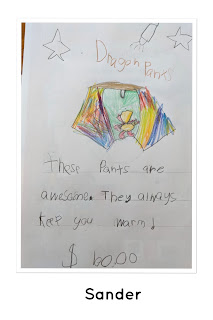 Dragon Pants
These Pants are
awesome. They always
keep you warm!
$ 60.00
Sander